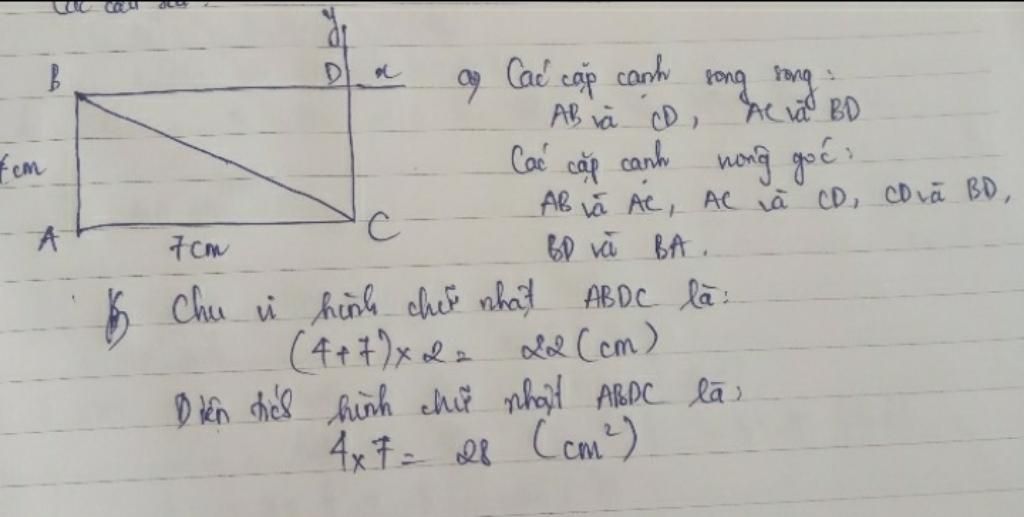 Các câu sau:
y
B
D
x
4cm
A
7cm
C
a) Các cặp cạnh song song:
AB và CD, AC và BD
Các cặp cạnh vuông góc:
AB và AC, AC và CD, CD và BD,
BD và BA.
b) Chu vi hình chữ nhật ABDC là:
(4+7)×2= 22 (cm)
Diện tích hình chữ nhật ABDC là:
4×7= 28 (cm²)